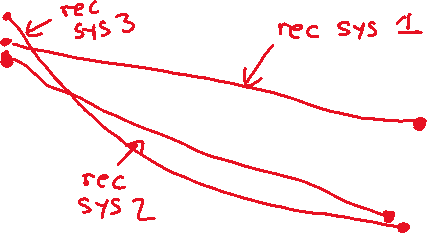 rec
sys 3
rec sys 1
rec
sys 2